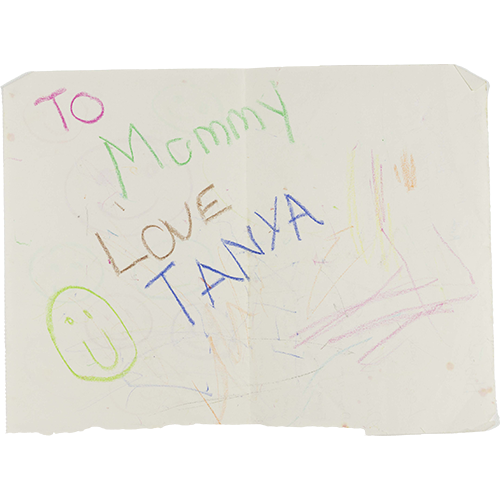 TO
Mommy
LOVE
TANYA